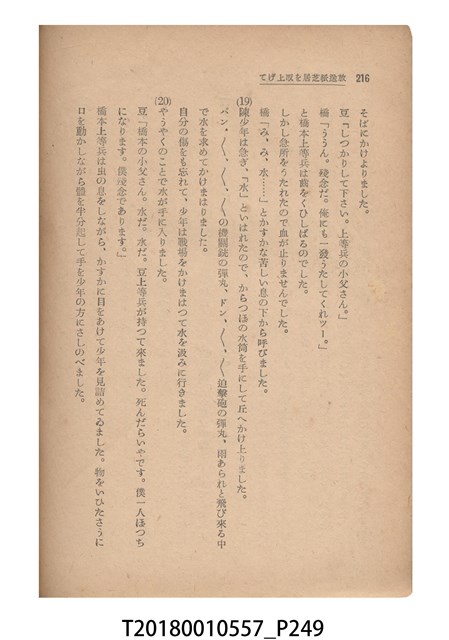 216
放送紙芝居を取上げて
そばにかけよりました。
豆「しつかりして下さい。上等兵の小父さん。」
橋「ううん。殘念だ。俺にも一發うたしてくれツー。」
と橋本上等兵は齒をくひしばるのでした。
しかし急所をうたれたので血が止りませんでした。
橋「み、み、水……」とかすかな苦しい息の下から呼びました。
(19)
陳少年は急ぎ、「水」といはれたので、からつぽの水筒を手にして丘へかけ上りました。
バン、〱、〱、〱の機關銃の彈丸、ドン、〱、〱迫擊砲の彈丸、雨あられと飛び來る中
で水を求めてかけまはりました。
自分の傷をも忘れて、少年は戰場をかけまはつて水を汲みに行きました。
(20)
やうやくのことで水が手に入りました。
豆「橋本の小父さん。水だ。水だ。豆上等兵が持つて來ました。死んだらいやです。僕一人ぼつち
になります。僕殘念であります。」
橋本上等兵は虫の息をしながら、かすかに目をあけて少年を見詰めてゐました。物をいひたさうに
口を動かしながら體を半分起して手を少年の方にさしのべました。
T20180010557_P249